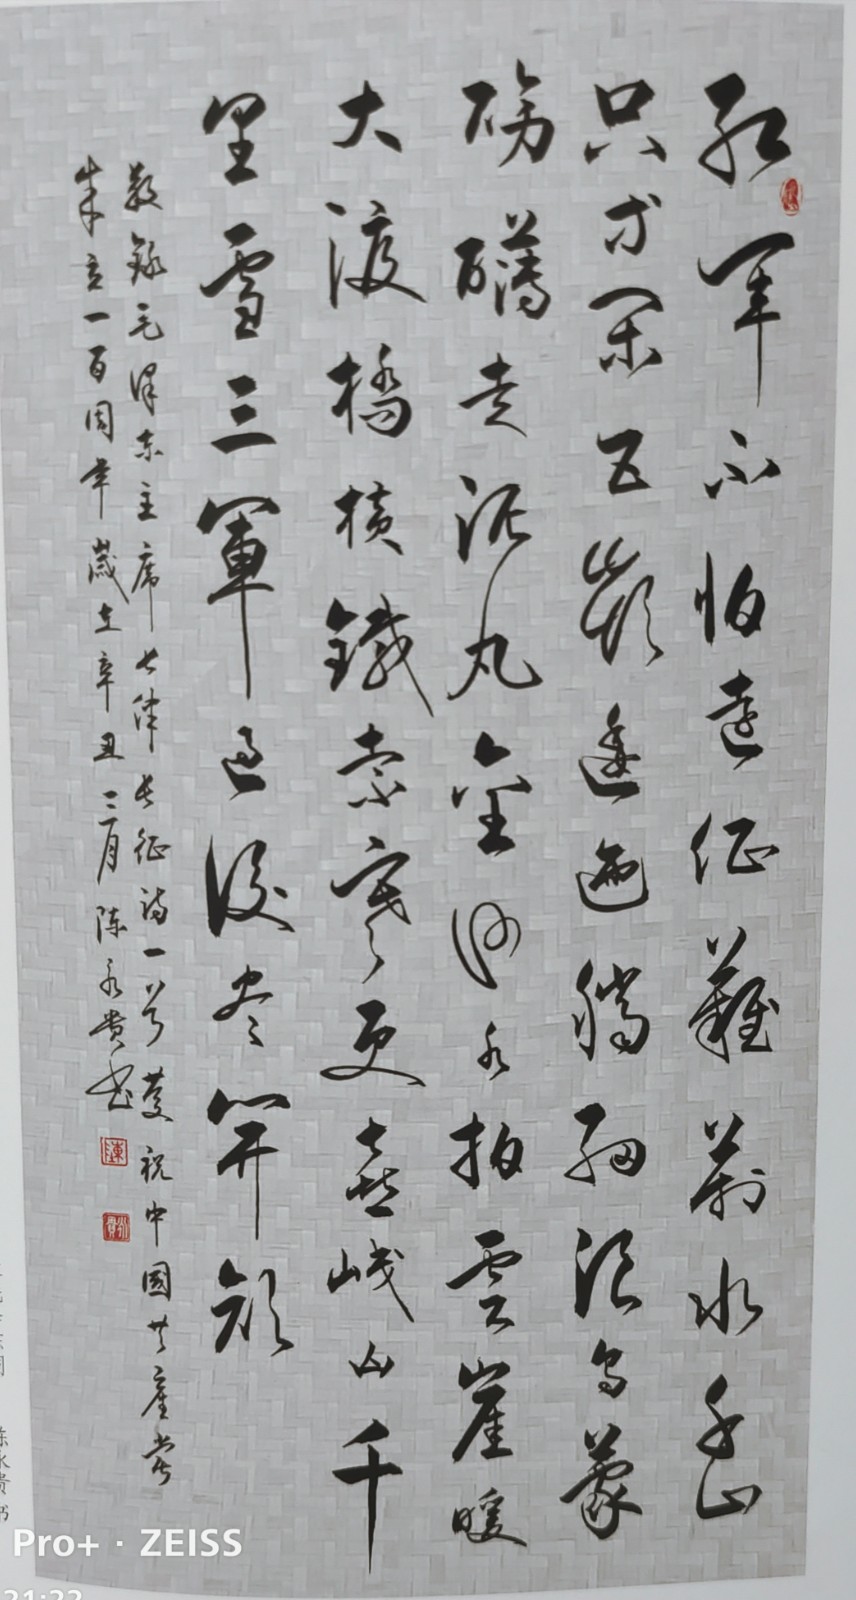 红军不怕远征难萬水千山
只等闲五岭逶迤腾细浪乌蒙
磅礴走泥丸金沙水拍雲崖暖
大渡橋横鐵索寒更喜岷山千
里雪三軍过後尽開颜
敬録毛泽东主席七律长征诗一首慶祝中国共產党
成立一百周年歲在辛丑三月陈永贵书
陈永贵 书
Pro+ · ZEISS
21:22